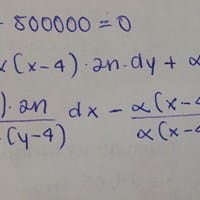 - 800000 = 0
α(x-4) · 2n · dy + α
) · 2n / · (y-4) dx - α(x-4 / α(x-4